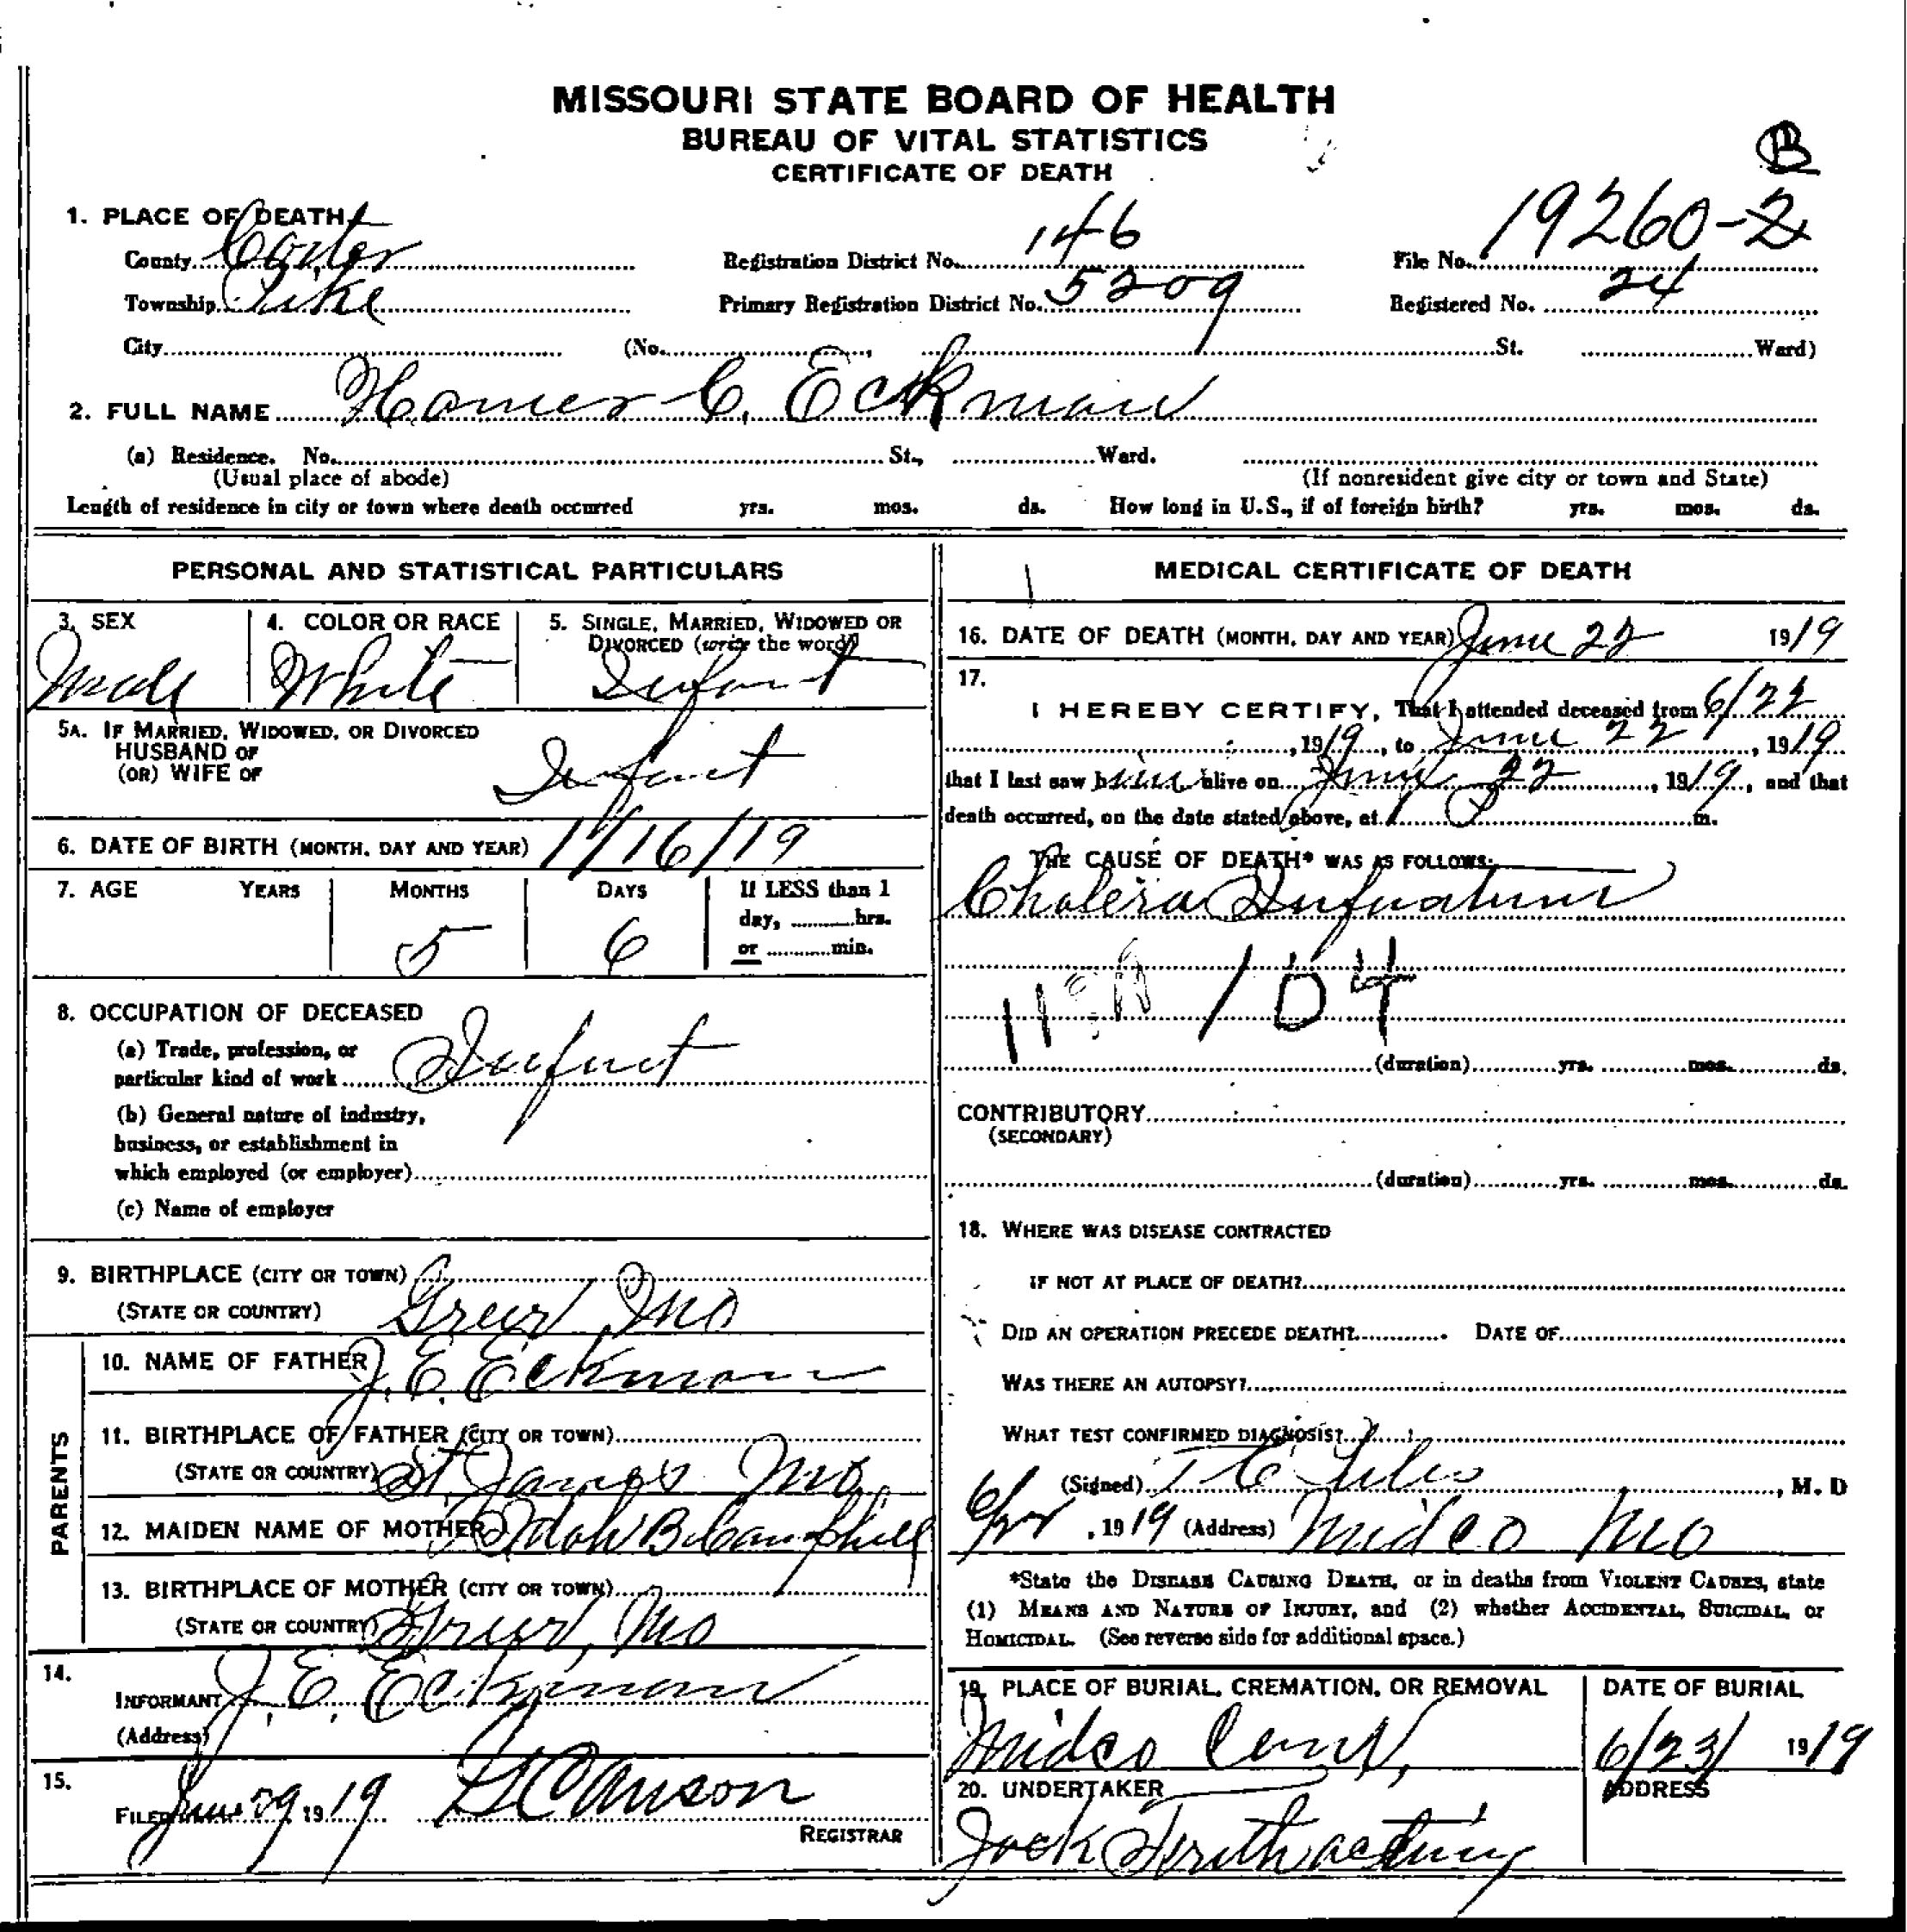 MISSOURI STATE BOARD OF HEALTH
BUREAU OF VITAL STATISTICS
CERTIFICATE OF DEATH
B
1. PLACE OF DEATH
County Carter Registration District No. 146 File No. 19260-2
Township Pike Primary Registration District No. 5209 Registered No. 24
City (No. , St. Ward)
2. FULL NAME Homer C. Eckman
(a) Residence. No. St., Ward.
(Usual place of abode) (If nonresident give city or town and State)
Length of residence in city or town where death occurred yrs. mos. ds. How long in U.S., if of foreign birth? yrs. mos. ds.
PERSONAL AND STATISTICAL PARTICULARS
3. SEX 4. COLOR OR RACE 5. SINGLE, MARRIED, WIDOWED OR
DIVORCED (write the word)
Male White Infant
5A. IF MARRIED, WIDOWED, OR DIVORCED
HUSBAND OF
(OR) WIFE OF Infant
6. DATE OF BIRTH (MONTH, DAY AND YEAR) 1/16/19
7. AGE YEARS MONTHS DAYS If LESS than 1
day, hrs.
5 6 or min.
8. OCCUPATION OF DECEASED
(a) Trade, profession, or
particular kind of work Infant
(b) General nature of industry,
business, or establishment in
which employed (or employer)
(c) Name of employer
9. BIRTHPLACE (CITY OR TOWN)
(STATE OR COUNTRY) Mo
PARENTS
10. NAME OF FATHER J. E. Eckman
11. BIRTHPLACE OF FATHER (CITY OR TOWN)
(STATE OR COUNTRY) St. James Mo.
12. MAIDEN NAME OF MOTHER B. Campbell
13. BIRTHPLACE OF MOTHER (CITY OR TOWN)
(STATE OR COUNTRY) Mo
14.
INFORMANT J. E. Eckman
(Address)
15.
FILED 29, 1919
REGISTRAR
MEDICAL CERTIFICATE OF DEATH
16. DATE OF DEATH (MONTH, DAY AND YEAR) June 22 1919
17.
I HEREBY CERTIFY, That I attended deceased from 6/22
, 1919, to June 22, 1919
that I last saw him alive on June 22, 1919, and that
death occurred, on the date stated above, at 1 P m.
THE CAUSE OF DEATH* WAS AS FOLLOWS:
Cholera Infantum
104
(duration) yrs. mos. ds.
CONTRIBUTORY
(SECONDARY)
(duration) yrs. mos. ds.
18. WHERE WAS DISEASE CONTRACTED
IF NOT AT PLACE OF DEATH?
DID AN OPERATION PRECEDE DEATH? DATE OF
WAS THERE AN AUTOPSY?
WHAT TEST CONFIRMED DIAGNOSIS?
(Signed) T C , M. D
, 1919 (Address) Midco Mo
*State the DISEASE CAUSING DEATH, or in deaths from VIOLENT CAUSES, state
(1) MEANS AND NATURE OF INJURY, and (2) whether ACCIDENTAL, SUICIDAL, or
HOMICIDAL. (See reverse side for additional space.)
19. PLACE OF BURIAL, CREMATION, OR REMOVAL DATE OF BURIAL
Midco Cem, 6/23/ 1919
20. UNDERTAKER ADDRESS
Jack acting